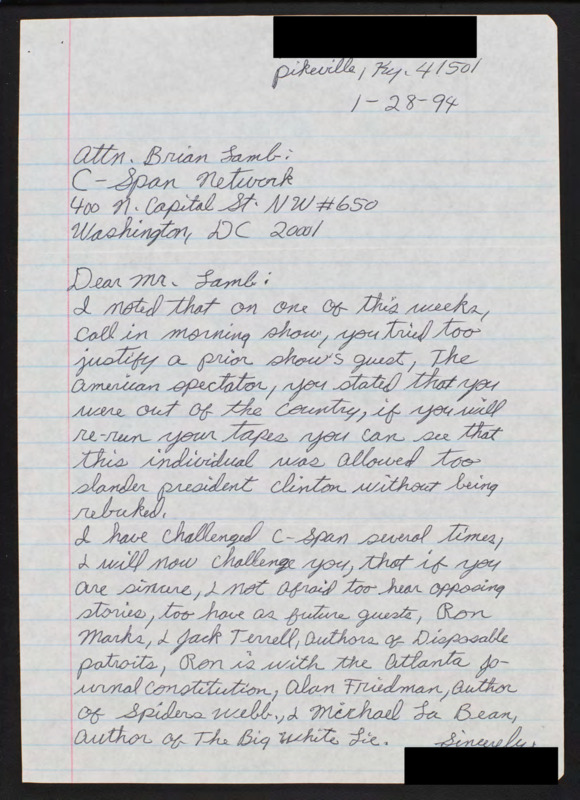 Pikeville, Ky. 41501
1-28-94
Attn. Brian Lamb:
C-Span Network
400 N. Capital St. NW #650
Washington, DC 20001
Dear Mr. Lamb:
I noted that on one of this weeks,
call in morning show, you tried too
justify a prior show's guest, The
american spectator, you stated that you
were out of the country, if you will
re-run your tapes you can see that
this individual was allowed too
slander president clinton without being
rebuked.
I have challenged C-Span several times,
I will now challenge you, that if you
are sincure, & not afraid too hear opposing
stories, too have as future guests, Ron
Marks, & Jack Terrell, authors of Disposable
patroits, Ron is with the atlanta jo-
urnal constitution, alan Friedman, author
of Spiders webb., & Michael La Bean,
author of The Big White Lie. Sincerely,